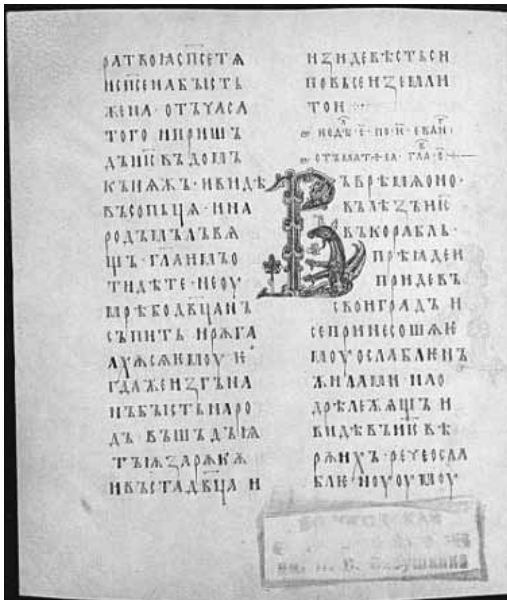 РАТВОІАСП҃СЕТѦ
ИСП҃СЕНАБЪІСТЬ
ЖЕНА · ОТЪЧАСА
ТОГО ИПРИШЪ
ДЪІ҃СВЪДОМЪ
КЪНѦЖЬ · ИВИДѢ
ВЪСОПЬЦѦ · ИНА
РОДЪМЪЛЪВѦ
ЩЬ · ГЛ҃АИМЪО
ТИДѢТЕ · НЕОУ
МРѢБОДВ҃ЦАНЪ
СЪПИТЬ ИРѪГА
АХѪСѦѤМОУ Ѥ
ГДАЖЕИЗГЪНА
НЪБЪІСТЬНАРО
ДЪ · ВЪШЪДЪІѦ
ТЪІѪЗАРѪКѪ
ИВЪСТАДВ҃ЦА И
ИЗИДЕВѢСТЬСИ
ПОВЬСЕИЗЕМЛИ
ТОИ
НЕДѢ · ПО · ЕВАН
ОТЪМАТѲЕА · ГЛА
ВЪВРѢМѦОНО ·
ВЪЛѢЗЪІ҃С
ВЪКОРАБЛЬ ·
ПРѢІДЕИ
ПРИДЕВЪ
СВОИГРАДЪ И
СЕПРИНЕСОШѦѤ
МОУОСЛАБЛЕНЪ
ЖИЛАМИ НАО
ДРѢЛЕЖѦЩЬ И
ВИДѢВЪІ҃СВѢ
РѪИХЪ · РЕЧЕОСЛА
БЛЕНОУОУМОУ
им. И. В. Бабушкина